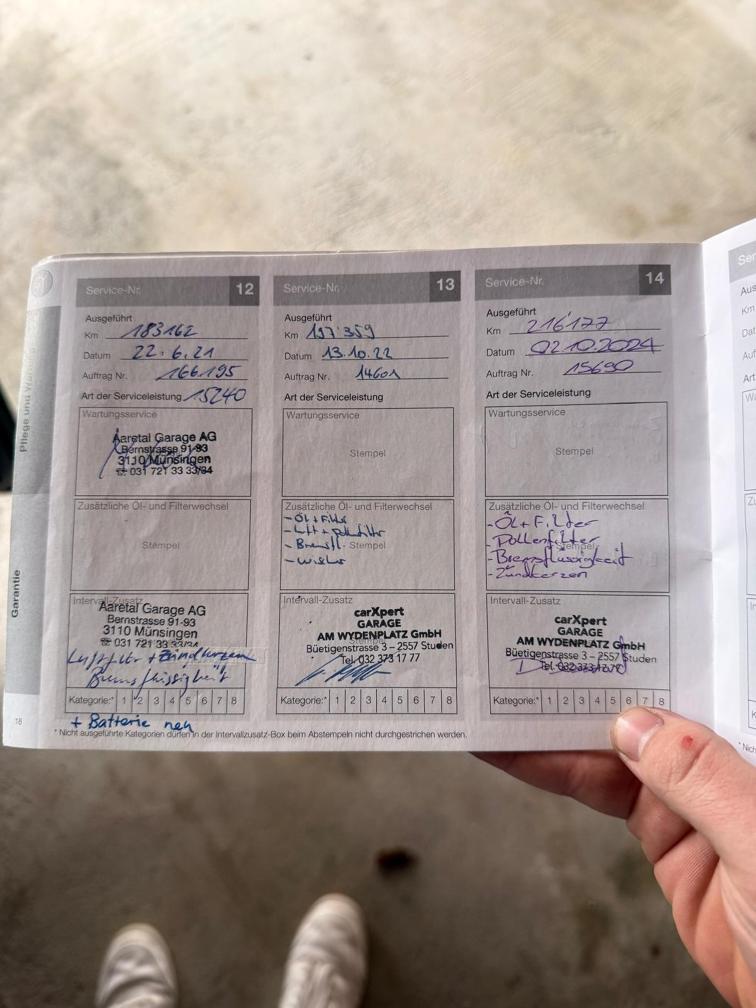 Pflege und
Garantie
18
Service-Nr. 12
Ausgeführt
Km 183162
Datum 22.6.21
Auftrag Nr. 166.195
Art der Serviceleistung 15240
Wartungsservice
Aaretal Garage AG
Bernstrasse 91-93
3110 Münsingen
☎ 031 721 33 33/34
Zusätzliche Öl- und Filterwechsel
Stempel
Intervall-Zusatz
Aaretal Garage AG
Bernstrasse 91-93
3110 Münsingen
☎ 031 721 33 33/34
Luftfilter + Zündkerzen
Bremsflüssigkeit
Kategorie:* 1 2 3 4 5 6 7 8
+ Batterie neu
Service-Nr. 13
Ausgeführt
Km 197'359
Datum 13.10.22
Auftrag Nr. 14601
Art der Serviceleistung
Wartungsservice
Stempel
Zusätzliche Öl- und Filterwechsel
- Öl + Filter
- Luft + Pollenfilter
- Bremsfl. Stempel
- Wisher
Intervall-Zusatz
carXpert
GARAGE
AM WYDENPLATZ GmbH
Büetigenstrasse 3 – 2557 Studen
Tel. 032 373 17 77
Kategorie:* 1 2 3 4 5 6 7 8
Service-Nr. 14
Ausgeführt
Km 216'177
Datum 02.10.2024
Auftrag Nr. 15690
Art der Serviceleistung
Wartungsservice
Stempel
Zusätzliche Öl- und Filterwechsel
- Öl + Filter
- Pollenfilter
- Bremsflüssigkeit
- Zündkerzen
Stempel
Intervall-Zusatz
carXpert
GARAGE
AM WYDENPLATZ GmbH
Büetigenstrasse 3 – 2557 Studen
Kategorie:* 1 2 3 4 5 6 7 8
* Nicht ausgeführte Kategorien dürfen in der Intervallzusatz-Box beim Abstempeln nicht durchgestrichen werden.